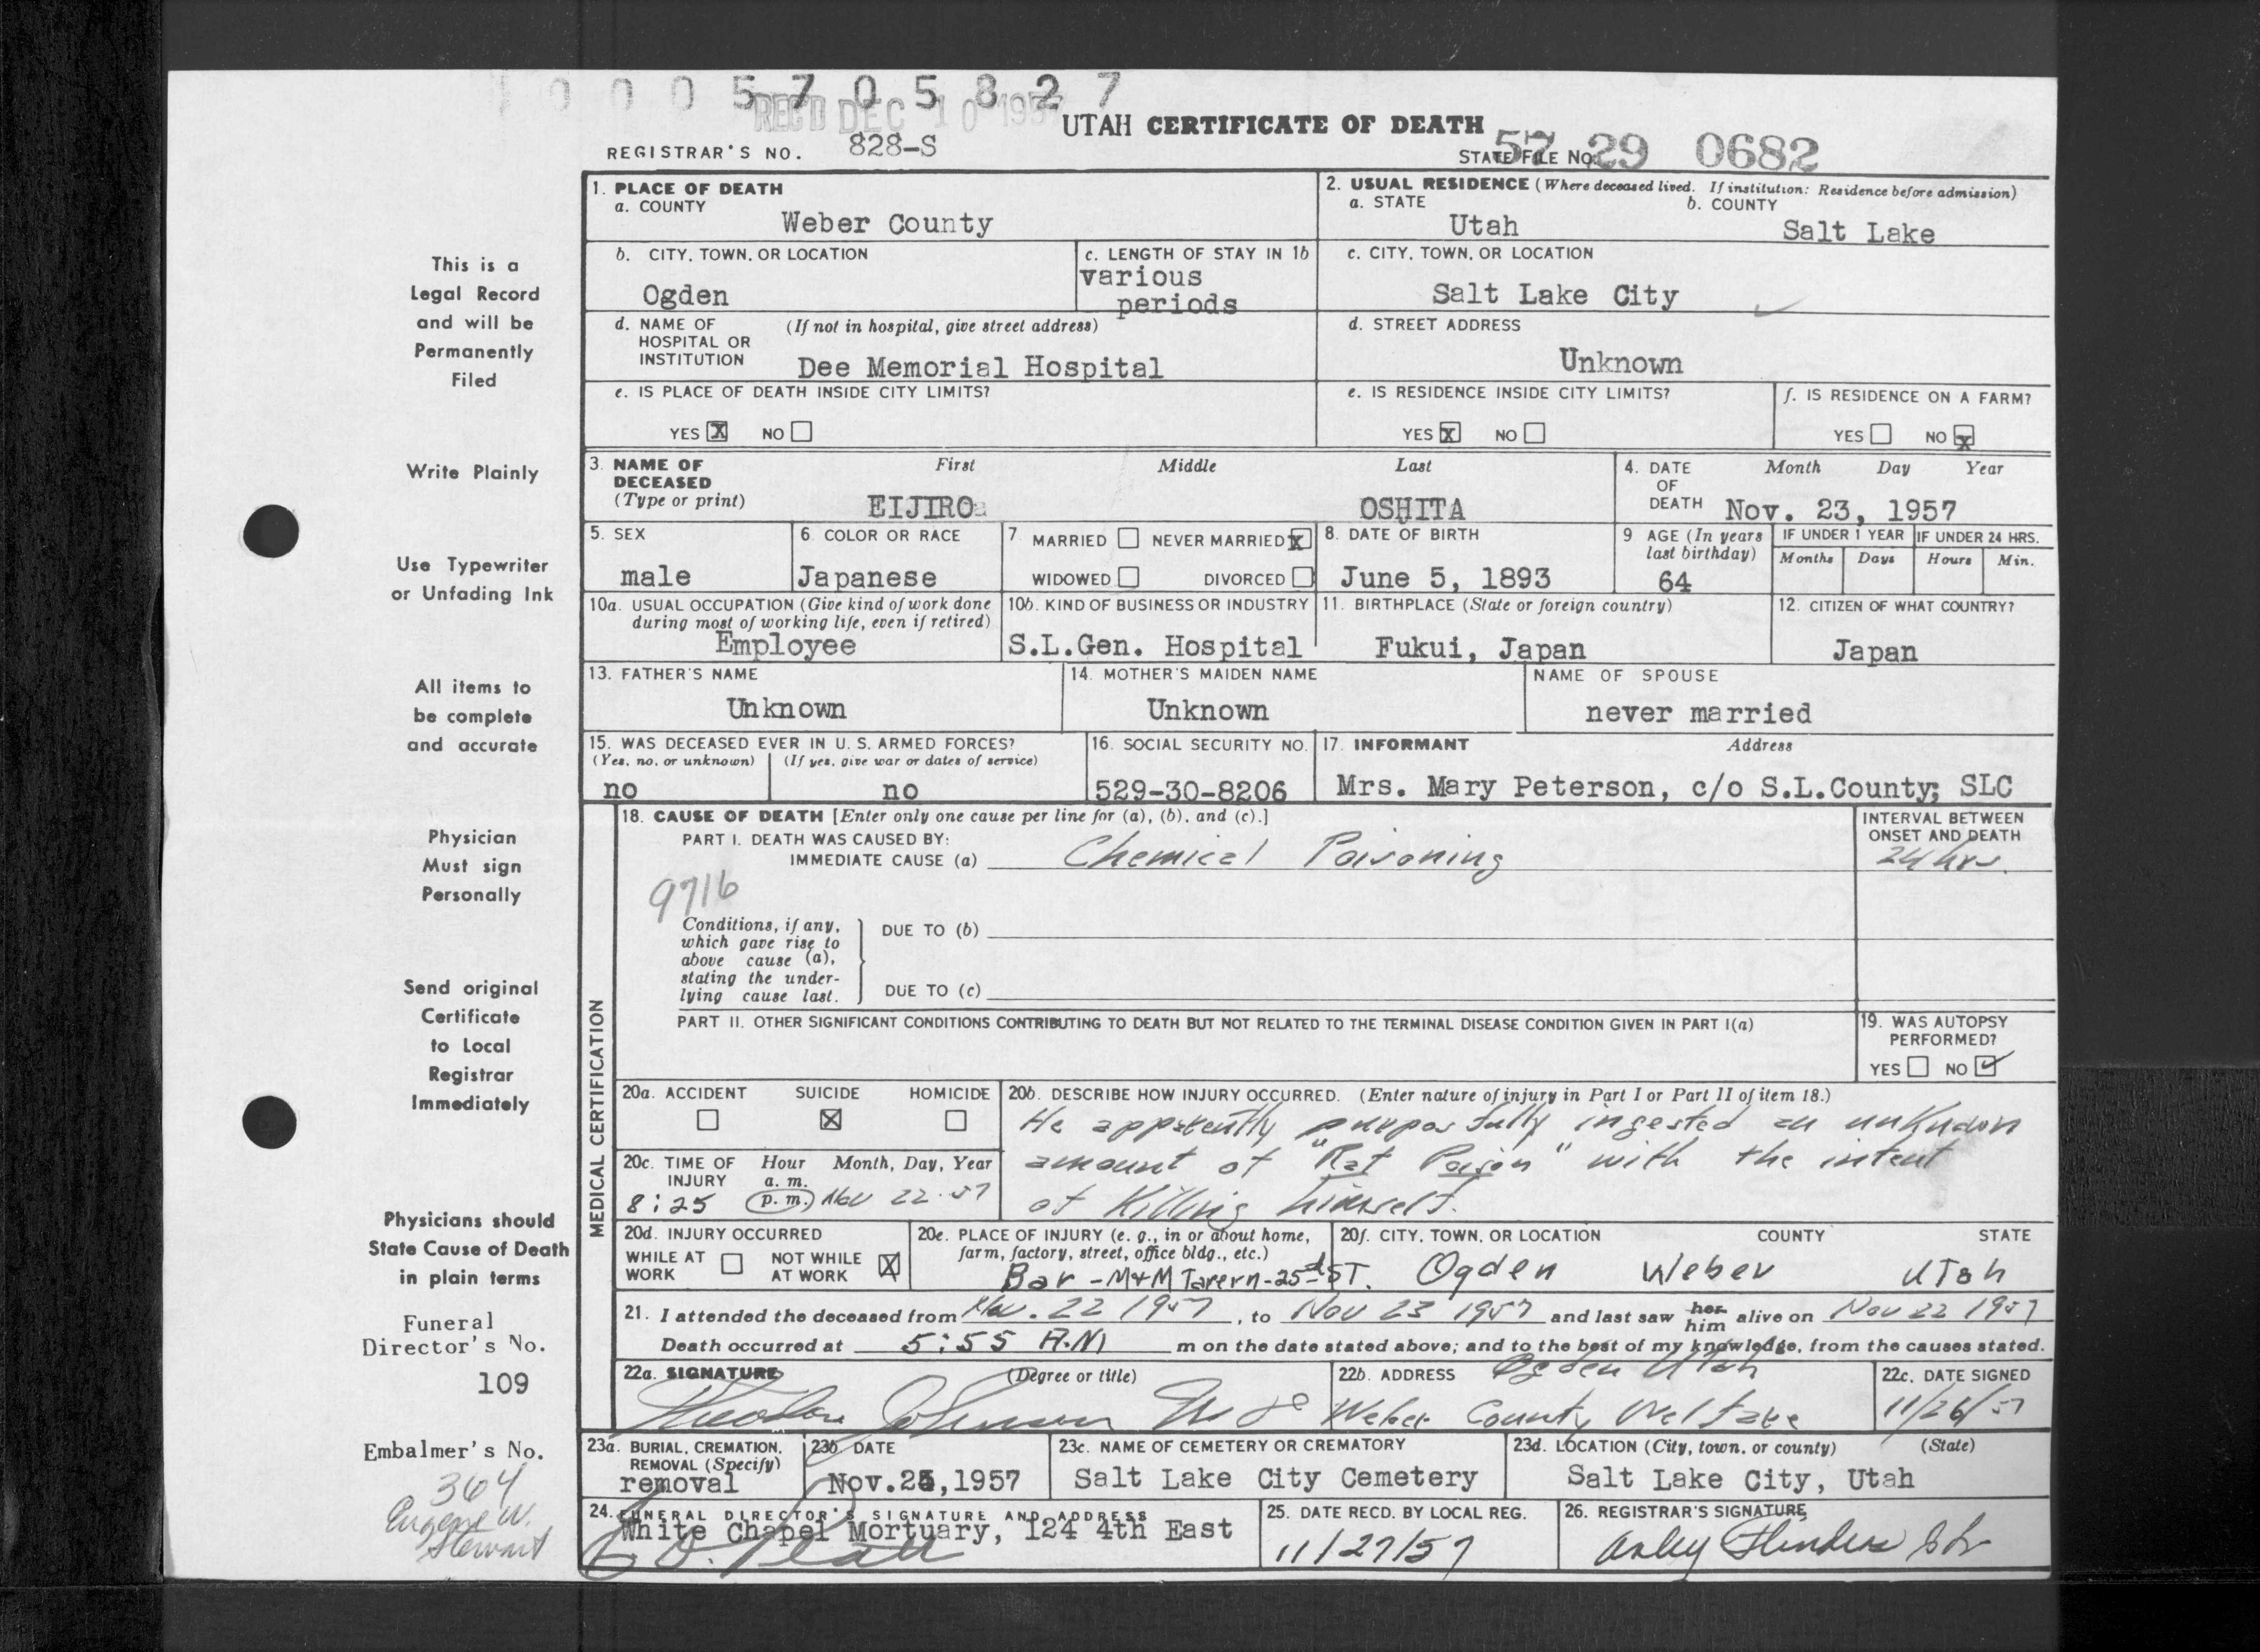 1 0 0 0 5 7 0 5 8 2 7
REC'D DEC 10 1957
UTAH CERTIFICATE OF DEATH
REGISTRAR'S NO. 828-S
STATE FILE NO. 57 29 0682
This is a
Legal Record
and will be
Permanently
Filed
Write Plainly
Use Typewriter
or Unfading Ink
All items to
be complete
and accurate
Physician
Must sign
Personally
Send original
Certificate
to Local
Registrar
Immediately
Physicians should
State Cause of Death
in plain terms
Funeral
Director's No.
109
Embalmer's No.
364
Eugene W.
Stewart
1. PLACE OF DEATH
a. COUNTY
Weber County
2. USUAL RESIDENCE (Where deceased lived. If institution: Residence before admission)
a. STATE
Utah
b. COUNTY
Salt Lake
b. CITY, TOWN, OR LOCATION
Ogden
c. LENGTH OF STAY IN 1b
various
periods
c. CITY, TOWN, OR LOCATION
Salt Lake City
d. NAME OF (If not in hospital, give street address)
HOSPITAL OR
INSTITUTION Dee Memorial Hospital
d. STREET ADDRESS
Unknown
e. IS PLACE OF DEATH INSIDE CITY LIMITS?
YES X NO
e. IS RESIDENCE INSIDE CITY LIMITS?
YES X NO
f. IS RESIDENCE ON A FARM?
YES NO X
3. NAME OF
DECEASED
(Type or print)
First Middle Last
EIJIRO OSHITA
4. DATE
OF
DEATH
Month Day Year
Nov. 23, 1957
5. SEX
male
6. COLOR OR RACE
Japanese
7. MARRIED NEVER MARRIED X
WIDOWED DIVORCED
8. DATE OF BIRTH
June 5, 1893
9 AGE (In years
last birthday)
64
IF UNDER 1 YEAR
Months Days
IF UNDER 24 HRS.
Hours Min.
10a. USUAL OCCUPATION (Give kind of work done
during most of working life, even if retired)
Employee
10b. KIND OF BUSINESS OR INDUSTRY
S.L.Gen. Hospital
11. BIRTHPLACE (State or foreign country)
Fukui, Japan
12. CITIZEN OF WHAT COUNTRY?
Japan
13. FATHER'S NAME
Unknown
14. MOTHER'S MAIDEN NAME
Unknown
NAME OF SPOUSE
never married
15. WAS DECEASED EVER IN U. S. ARMED FORCES?
(Yes, no, or unknown) (If yes, give war or dates of service)
no no
16. SOCIAL SECURITY NO.
529-30-8206
17. INFORMANT Address
Mrs. Mary Peterson, c/o S.L.County; SLC
MEDICAL CERTIFICATION
18. CAUSE OF DEATH [Enter only one cause per line for (a), (b), and (c).]
PART I. DEATH WAS CAUSED BY:
IMMEDIATE CAUSE (a) Chemical Poisoning
INTERVAL BETWEEN
ONSET AND DEATH
24 hrs.
9716
Conditions, if any,
which gave rise to
above cause (a),
stating the under-
lying cause last.
DUE TO (b)
DUE TO (c)
PART II. OTHER SIGNIFICANT CONDITIONS CONTRIBUTING TO DEATH BUT NOT RELATED TO THE TERMINAL DISEASE CONDITION GIVEN IN PART I(a)
19. WAS AUTOPSY
PERFORMED?
YES NO ✓
20a. ACCIDENT SUICIDE HOMICIDE
X
20b. DESCRIBE HOW INJURY OCCURRED. (Enter nature of injury in Part I or Part II of item 18.)
He apparently purposfully ingested an unknown
amount of "Rat Poison" with the intent
of Killing himself.
20c. TIME OF Hour Month, Day, Year
INJURY a. m.
8:25 p. m. Nov 22 57
20d. INJURY OCCURRED
WHILE AT
WORK
NOT WHILE
AT WORK X
20e. PLACE OF INJURY (e. g., in or about home,
farm, factory, street, office bldg., etc.)
Bar - M+M Tavern - 25th ST.
20f. CITY, TOWN, OR LOCATION COUNTY STATE
Ogden Weber Utah
21. I attended the deceased from Nov. 22 1957, to Nov 23 1957 and last saw her him alive on Nov 22 1957
Death occurred at 5:55 A.M m on the date stated above; and to the best of my knowledge, from the causes stated.
22a. SIGNATURE (Degree or title)
Theodore Johnson
22b. ADDRESS Ogden Utah
Weber County Welfare
22c. DATE SIGNED
11/26/57
23a. BURIAL, CREMATION,
REMOVAL (Specify)
removal
23b DATE
Nov.25,1957
23c. NAME OF CEMETERY OR CREMATORY
Salt Lake City Cemetery
23d. LOCATION (City, town, or county) (State)
Salt Lake City, Utah
24. FUNERAL DIRECTOR'S SIGNATURE AND ADDRESS
White Chapel Mortuary, 124 4th East
25. DATE RECD. BY LOCAL REG.
11/27/57
26. REGISTRAR'S SIGNATURE